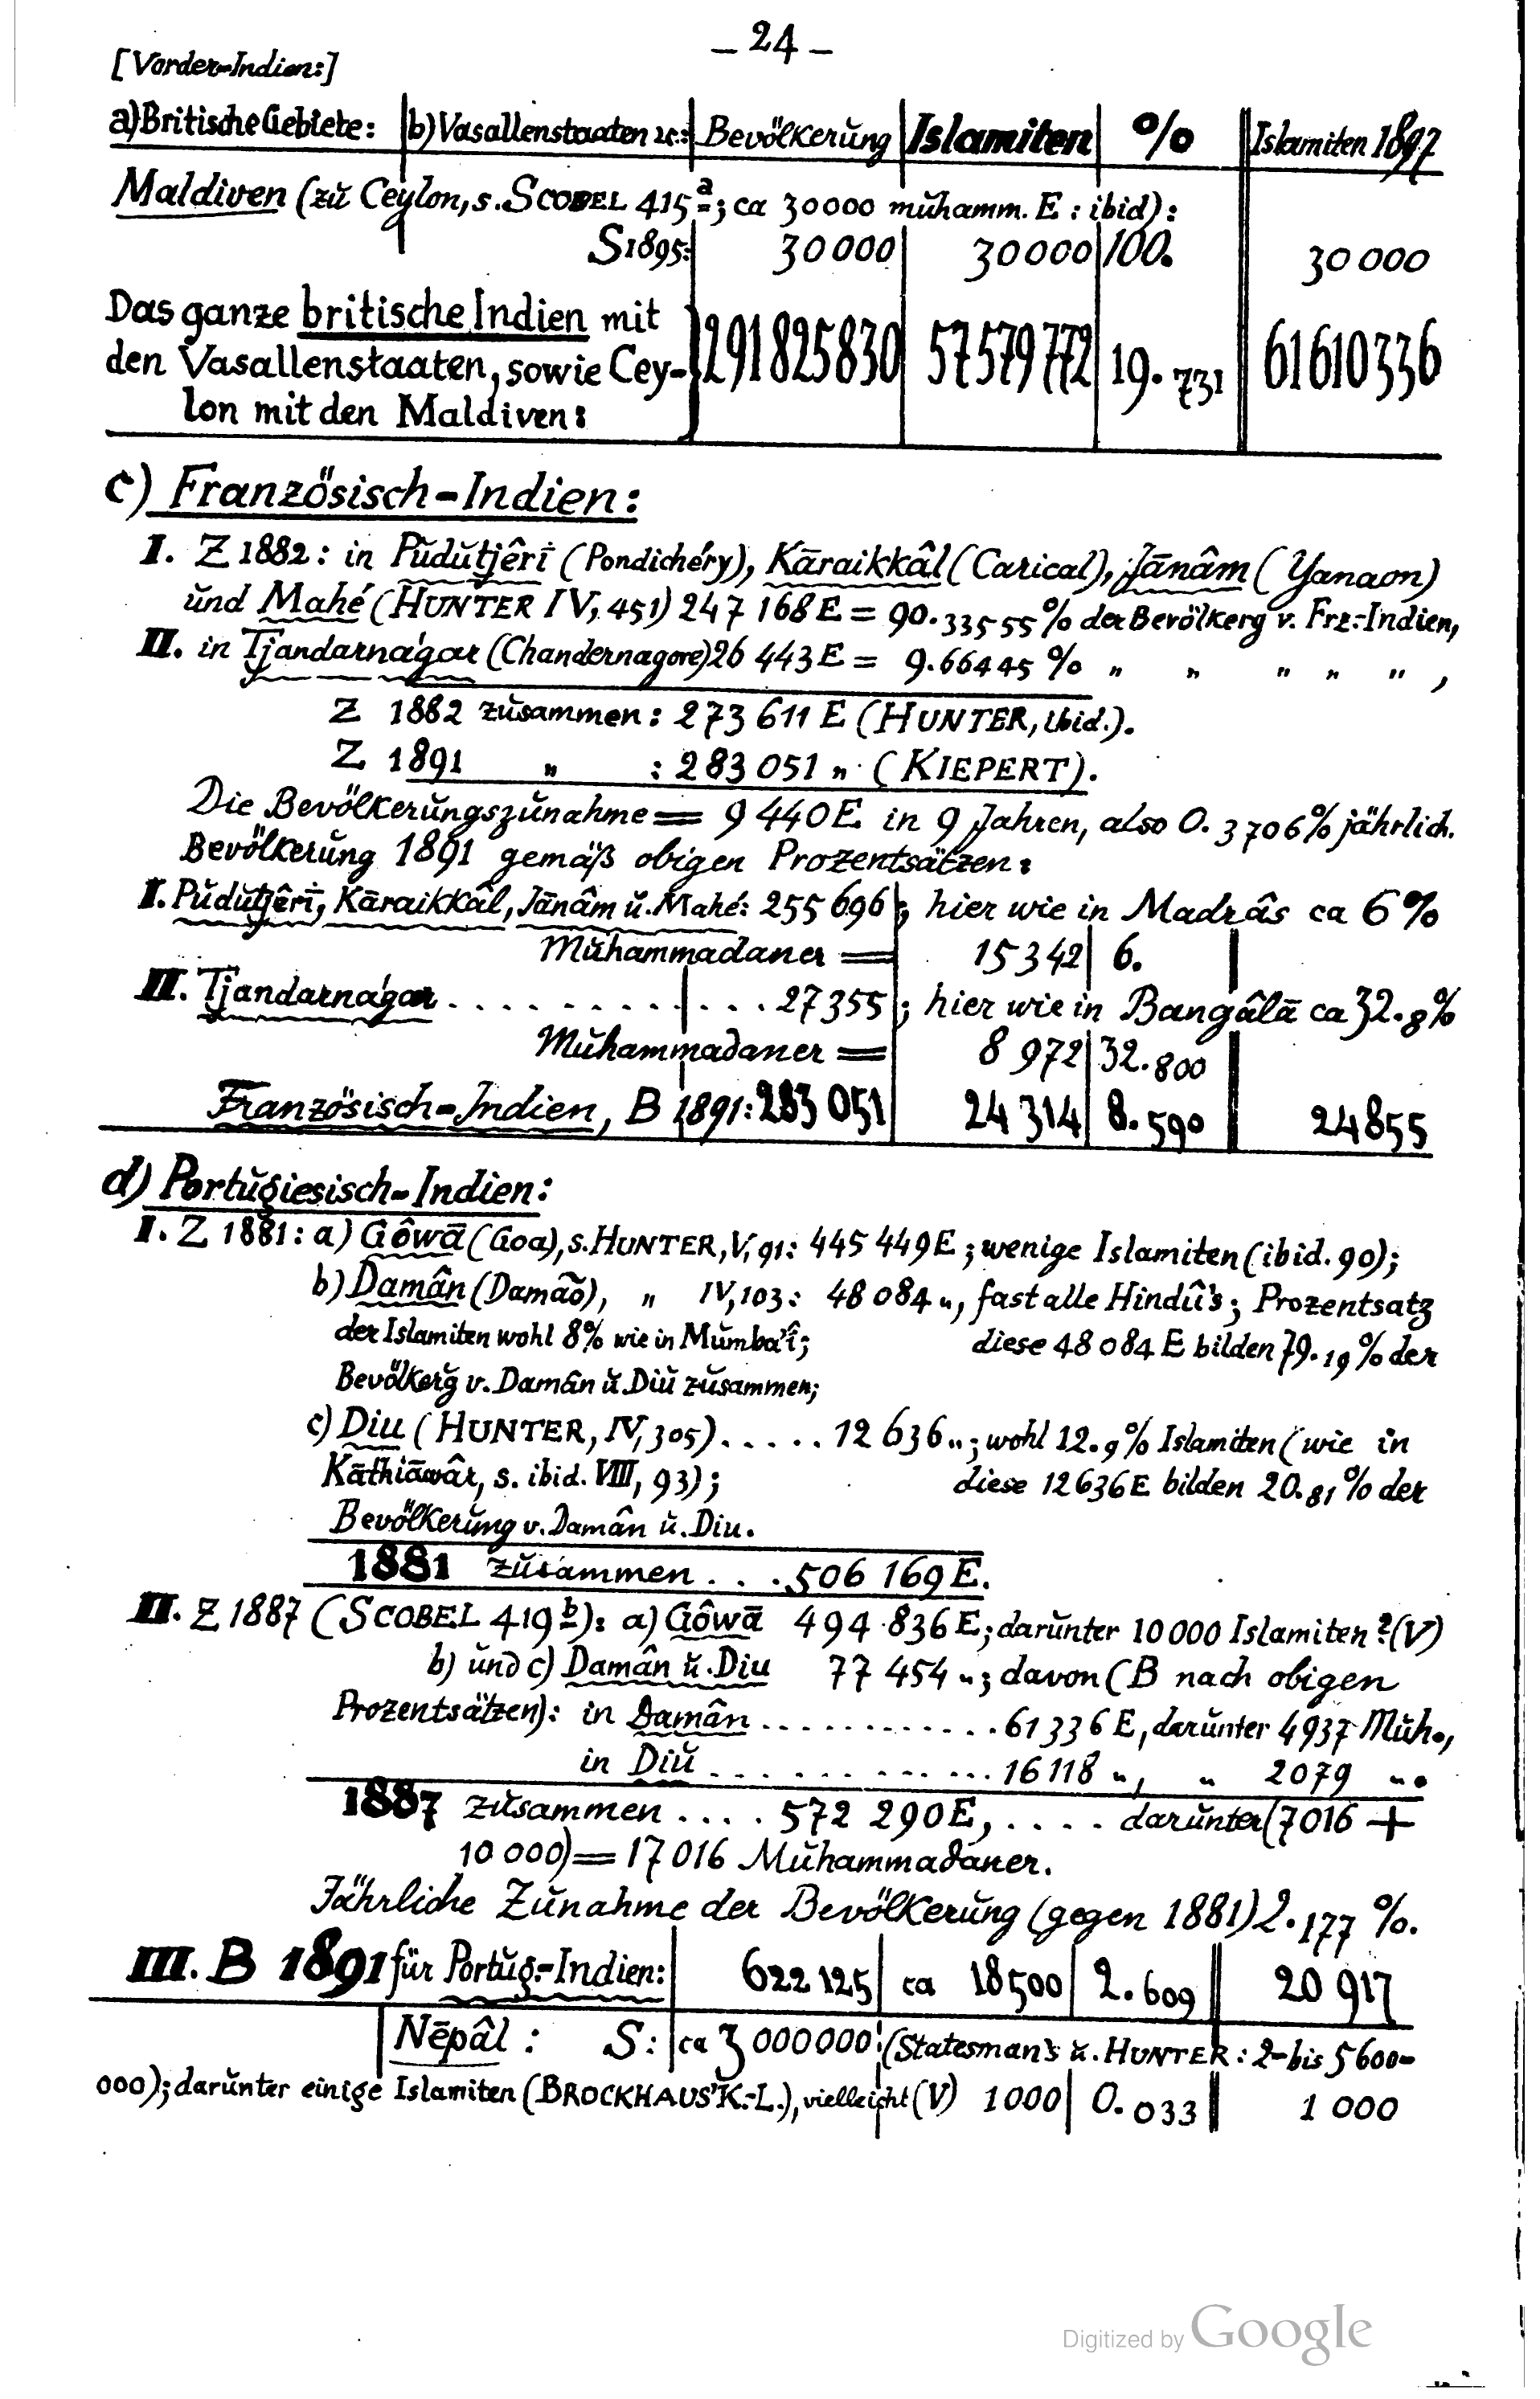 – 24 –
[Vorder-Indien:]
a) Britische Gebiete: b) Vasallenstaaten ꝛc.: Bevölkerŭng Islamiten % Islamiten 1897
Maldiven (zŭ Ceylon, s. SCOBEL 415ª; ca 30000 mŭhamm. E : ibid):
S 1895: 30 000 30 000 100. 30 000
Das ganze britische Indien mit
den Vasallenstaaten, sowie Cey- 291 825 830 57 579 772 19.731 61 610 336
lon mit den Maldiven:
c) Französisch-Indien:
I. Z 1882: in Pŭdŭtjêrī (Pondichéry), Kāraikkâl (Carical), Jānâm (Yanaon)
ŭnd Mahé (HUNTER IV, 451) 247 168 E = 90.33555 % der Bevölkerg v. Frz.-Indien,
II. in Tjandarnágar (Chandernagore) 26 443 E = 9.66445 % " " " " " ,
Z 1882 zŭsammen: 273 611 E (HUNTER, ibid.).
Z 1891 " : 283 051 " (KIEPERT).
Die Bevölkerŭngszŭnahme = 9 440 E. in 9 Jahren, also 0.3706 % jährlich.
Bevölkerŭng 1891 gemäß obigen Prozentsätzen:
I. Pŭdŭtjêrī, Kāraikkâl, Jānâm ŭ. Mahé: 255 696; hier wie in Madrâs ca 6%
Mŭhammadaner = 15 342 6.
II. Tjandarnágar . . . . . . . . . . . . 27 355; hier wie in Bangâlā ca 32.8%
Mŭhammadaner = 8 972 32.800
Französisch-Indien, B 1891: 283 051 24 314 8.590 24 855
d) Portŭgiesisch-Indien:
I. Z 1881: a) Gôwā (Goa), s. HUNTER, V, 91: 445 449 E; wenige Islamiten (ibid. 90);
b) Damân (Damão), " IV, 103: 48 084 ", fast alle Hindû's; Prozentsatz
der Islamiten wohl 8% wie in Mŭmba'î; diese 48 084 E bilden 79.19 % der
Bevölkerg v. Damân ŭ. Diŭ zŭsammen;
c) Diu (HUNTER, IV, 305) . . . . . 12 636 "; wohl 12.9 % Islamiten (wie in
Kāthiāwâr, s. ibid. VIII, 93); diese 12 636 E bilden 20.81 % der
Bevölkerŭng v. Damân ŭ. Diu.
1881 zŭsammen . . . 506 169 E.
II. Z 1887 (SCOBEL 419ᵇ): a) Gôwā 494 836 E; darŭnter 10 000 Islamiten ? (V)
b) ŭnd c) Damân ŭ. Diu 77 454 "; davon (B nach obigen
Prozentsätzen): in Damân . . . . . . . . . . . . 61 336 E, darŭnter 4 937 Mŭh.,
in Diŭ . . . . . . . . . . . . . 16 118 ", " 2079 ".
1887 zŭsammen . . . . 572 290 E, . . . . darŭnter (7016 +
10 000) = 17 016 Mŭhammadaner.
Jährliche Zŭnahme der Bevölkerŭng (gegen 1881) 2.177 %.
III. B 1891 für Portŭg.-Indien: 622 125 ca 18 500 2.609 20 917
Nēpâl : S: ca 3 000 000 (Statesman's ŭ. HUNTER: 2- bis 5 600-
000); darŭnter einige Islamiten (BROCKHAUS' K.-L.), vielleicht (V) 1000 0.033 1 000
Digitized by Google